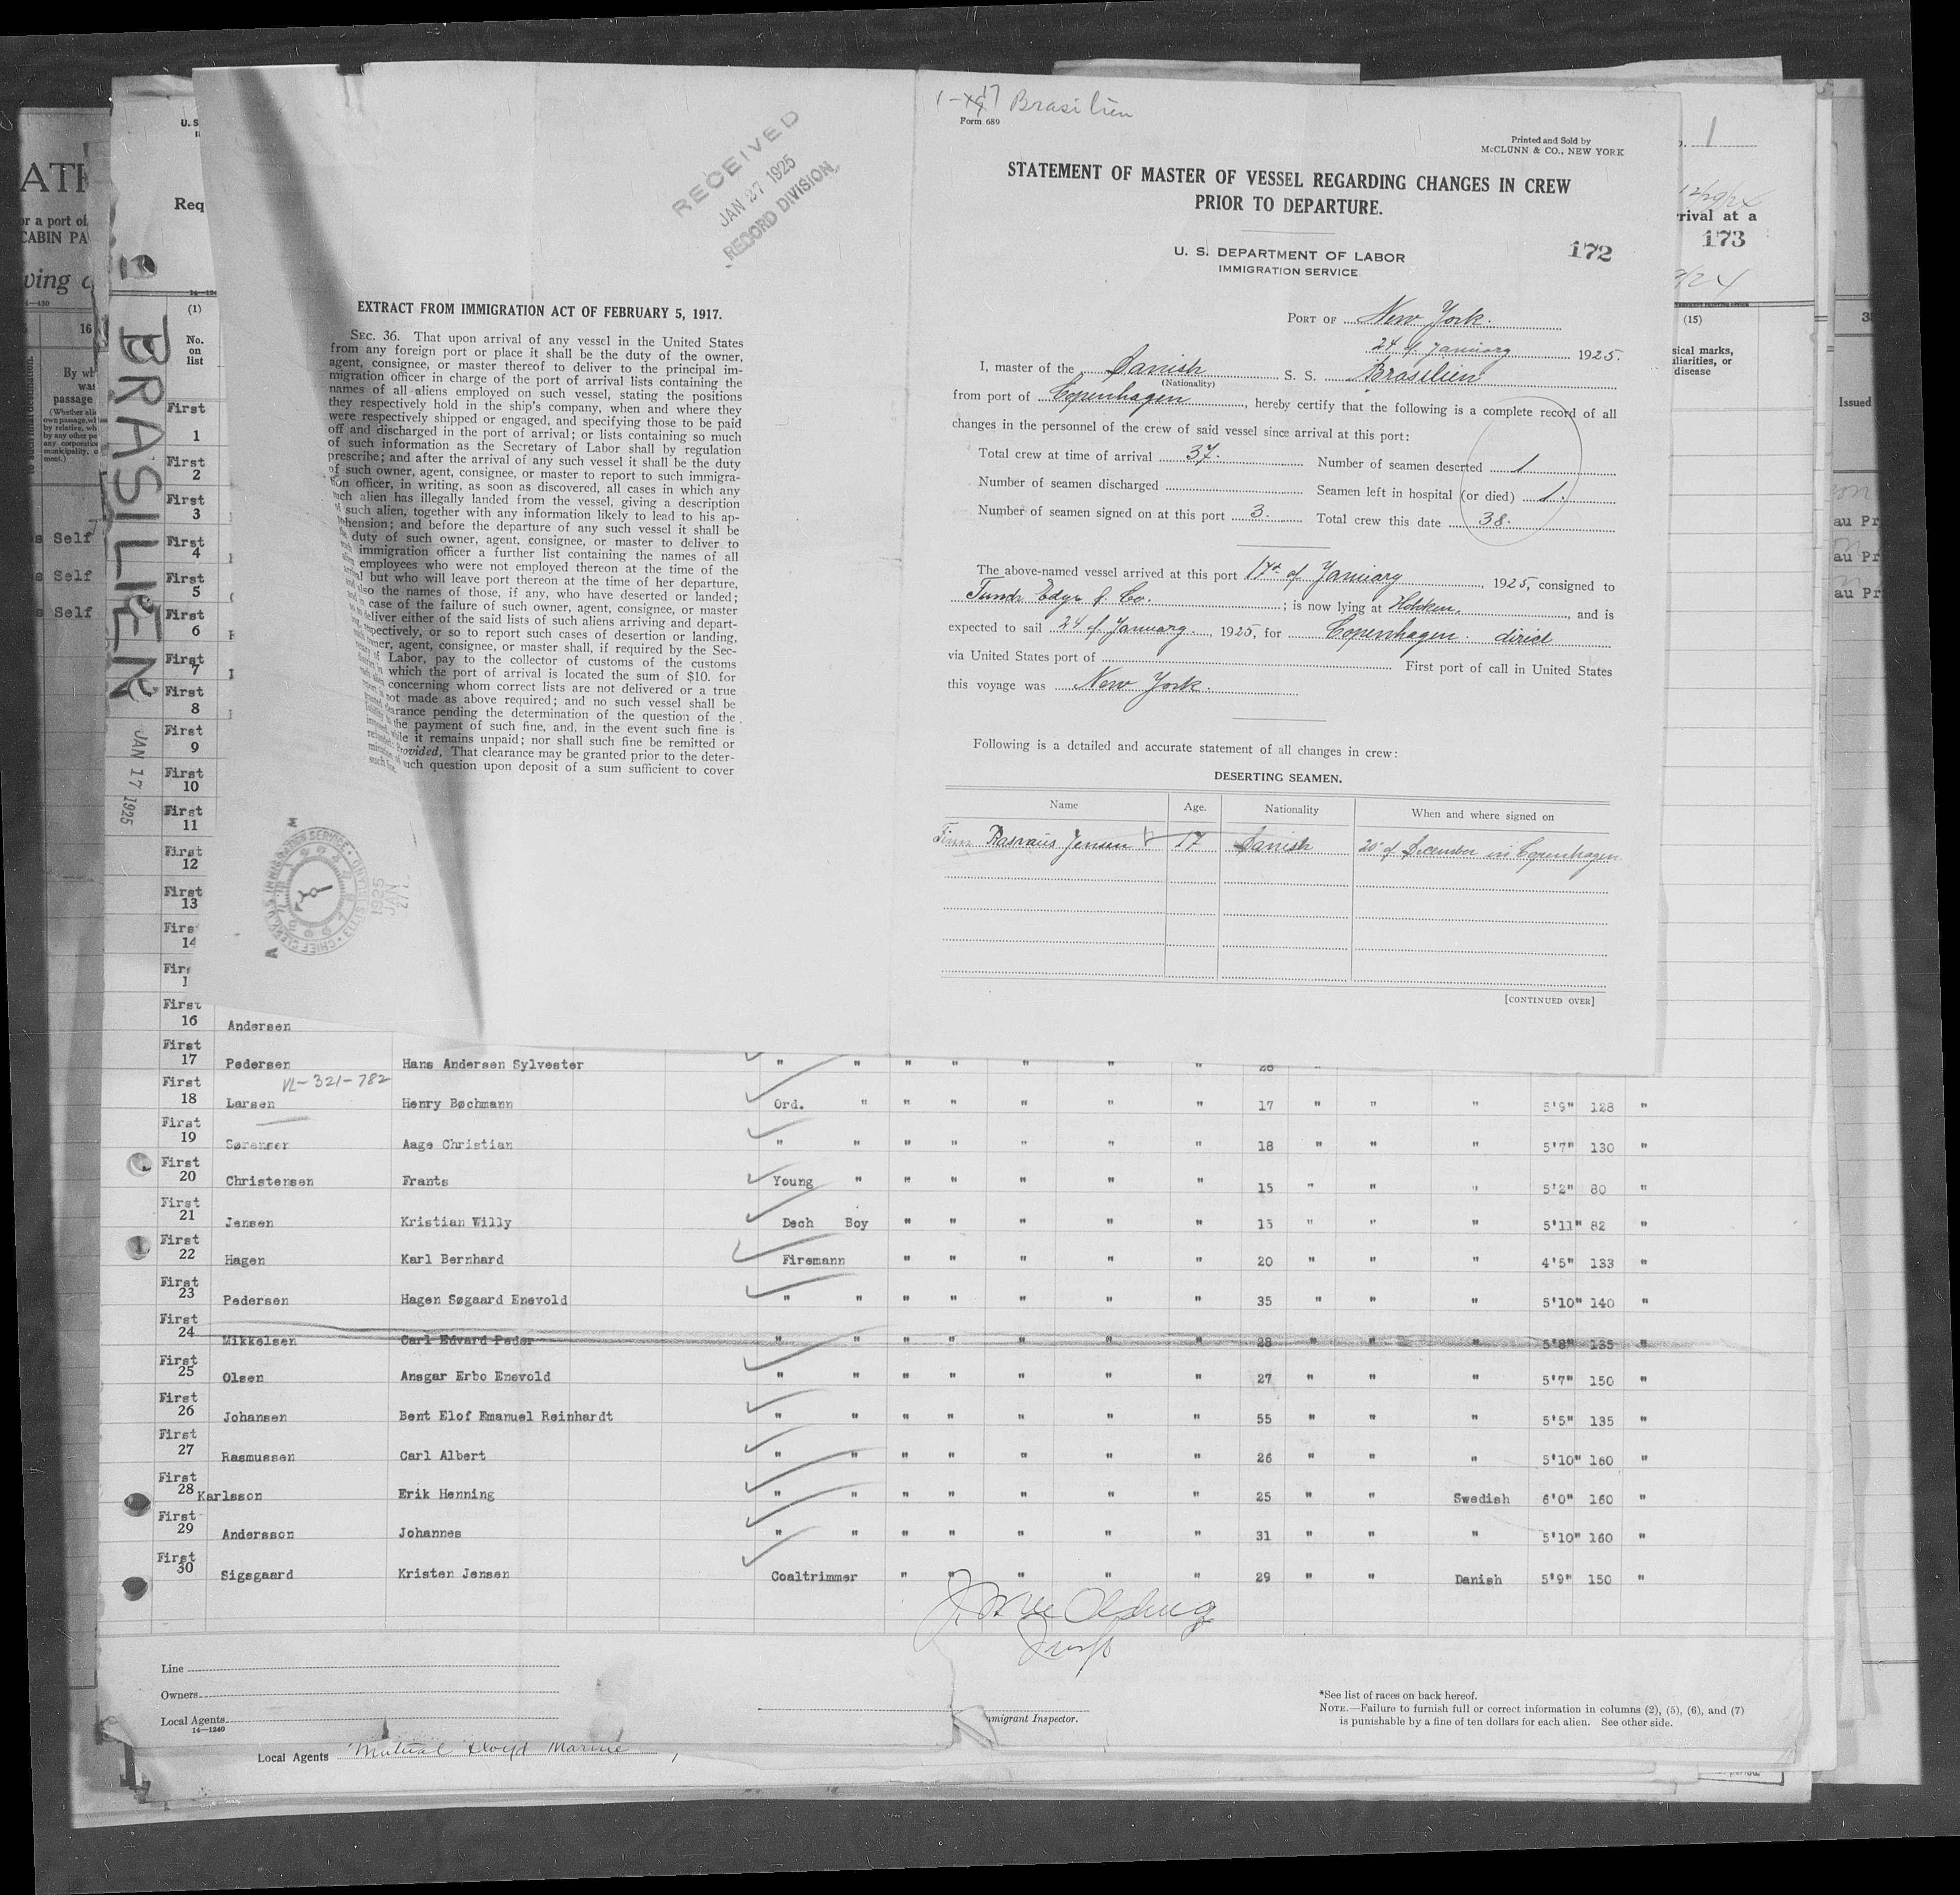 1-17 Brasilien
Form 689
Printed and Sold by
McCLUNN & CO., NEW YORK
STATEMENT OF MASTER OF VESSEL REGARDING CHANGES IN CREW
PRIOR TO DEPARTURE.
U. S. DEPARTMENT OF LABOR
IMMIGRATION SERVICE
172
PORT OF New York.
24 of January 1925.
I, master of the Danish S. S. Brasilien
(Nationality)
from port of Copenhagen, hereby certify that the following is a complete record of all
changes in the personnel of the crew of said vessel since arrival at this port:
Total crew at time of arrival 37. Number of seamen deserted 1
Number of seamen discharged Seamen left in hospital (or died) 1.
Number of seamen signed on at this port 3. Total crew this date 38.
The above-named vessel arrived at this port 17th of January, 1925, consigned to
Funch Edye & Co.; is now lying at Hobken, and is
expected to sail 24 of January, 1925, for Copenhagen. direct
via United States port of First port of call in United States
this voyage was New York.
Following is a detailed and accurate statement of all changes in crew:
DESERTING SEAMEN.
Name Age. Nationality When and where signed on
Rasmus Jensen 17 Danish 20 of December in Copenhagen
[CONTINUED OVER]
RECEIVED
JAN 27 1925
RECORD DIVISION
EXTRACT FROM IMMIGRATION ACT OF FEBRUARY 5, 1917.
SEC. 36. That upon arrival of any vessel in the United States
from any foreign port or place it shall be the duty of the owner,
agent, consignee, or master thereof to deliver to the principal im-
migration officer in charge of the port of arrival lists containing the
names of all aliens employed on such vessel, stating the positions
they respectively hold in the ship's company, when and where they
were respectively shipped or engaged, and specifying those to be paid
off and discharged in the port of arrival; or lists containing so much
of such information as the Secretary of Labor shall by regulation
prescribe; and after the arrival of any such vessel it shall be the duty
of such owner, agent, consignee, or master to report to such immigra-
tion officer, in writing, as soon as discovered, all cases in which any
such alien has illegally landed from the vessel, giving a description
of such alien, together with any information likely to lead to his ap-
prehension; and before the departure of any such vessel it shall be
the duty of such owner, agent, consignee, or master to deliver to
such immigration officer a further list containing the names of all
employees who were not employed thereon at the time of the
arrival but who will leave port thereon at the time of her departure,
and also the names of those, if any, who have deserted or landed;
case of the failure of such owner, agent, consignee, or master
deliver either of the said lists of such aliens arriving and depart-
ing, respectively, or so to report such cases of desertion or landing,
owner, agent, consignee, or master shall, if required by the Sec-
of Labor, pay to the collector of customs of the customs
which the port of arrival is located the sum of $10. for
concerning whom correct lists are not delivered or a true
not made as above required; and no such vessel shall be
clearance pending the determination of the question of the
the payment of such fine, and, in the event such fine is
while it remains unpaid; nor shall such fine be remitted or
Provided, That clearance may be granted prior to the deter-
such question upon deposit of a sum sufficient to cover
BRASILIEN
JAN 17 1925
Req
(1)
No.
on
list
First 1
First 2
First 3
First 4
First 5
First 6
First 7
First 8
First 9
First 10
First 11
First 12
First 13
14
First 16 Andersen
First 17 Pedersen Hans Andersen Sylvester " " " " " " "
VL-321-782
First 18 Larsen Henry Bøchmann Ord. " " " " " " 17 " " " 5'9" 128 "
First 19 Sørensen Aage Christian " " " " " " " 18 " " " 5'7" 130 "
First 20 Christensen Frants Young " " " " " " 15 " " " 5'2" 80 "
First 21 Jensen Kristian Willy Dech Boy " " " " " 15 " " " 5'11" 82 "
First 22 Hagen Karl Bernhard Firemann " " " " " 20 " " " 4'5" 133 "
First 23 Pedersen Hagen Søgaard Enevold " " " " " " " 35 " " " 5'10" 140 "
First 24 Mikkelsen Carl Edvard Peder " " " " " " " 28 " " " 5'8" 135 "
First 25 Olsen Ansgar Erbo Enevold " " " " " " " 27 " " " 5'7" 150 "
First 26 Johansen Bent Elof Emanuel Reinhardt " " " " " " " 55 " " " 5'5" 135 "
First 27 Rasmussen Carl Albert " " " " " " " 26 " " " 5'10" 160 "
First 28 Karlsson Erik Henning " " " " " " " 25 " " Swedish 6'0" 160 "
First 29 Andersson Johannes " " " " " " " 31 " " " 5'10" 160 "
First 30 Sigsgaard Kristen Jensen Coaltrimmer " " " " " 29 " " Danish 5'9" 150 "
Line
Owners
Local Agents
14—1240
Immigrant Inspector.
*See list of races on back hereof.
NOTE.—Failure to furnish full or correct information in columns (2), (5), (6), and (7)
is punishable by a fine of ten dollars for each alien. See other side.
Local Agents Mutual Lloyd Marine
1
rival at a
173
(15)
sical marks,
uliarities, or
disease
Issued
or a port of
CABIN PA
16
By wh
passage
Self
Self
Self
au Pr
au Pr
au Pr